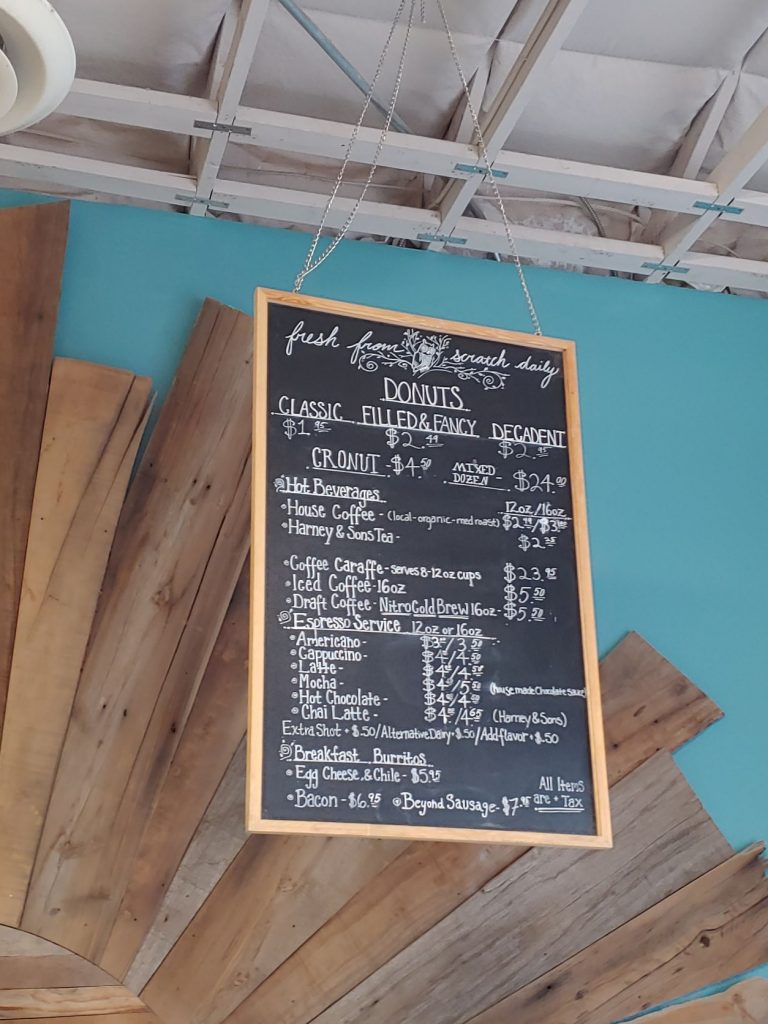 fresh from scratch daily
DONUTS
CLASSIC FILLED & FANCY DECADENT
$1.95 $2.49 $2.95
CRONUT - $4.50 MIXED DOZEN - $24.00
Hot Beverages 12oz/16oz
House Coffee - (local-organic-med roast) $2.79/$3.00
Harney & Sons Tea - $2.35
Coffee Caraffe - serves 8-12oz cups $23.95
Iced Coffee - 16oz $5.50
Draft Coffee - Nitro Cold Brew 16oz - $5.50
Espresso Service 12oz or 16oz
Americano -
Cappuccino -
Latte -
Mocha - (house made chocolate sauce)
Hot Chocolate -
Chai Latte - (Harney & Sons)
Extra Shot + $.50/Alternative Dairy + $.50/Add flavor + $.50
Breakfast Burritos
Egg Cheese & Chile - $5.95
Bacon - $6.95 Beyond Sausage - $7.95
All Items are + Tax